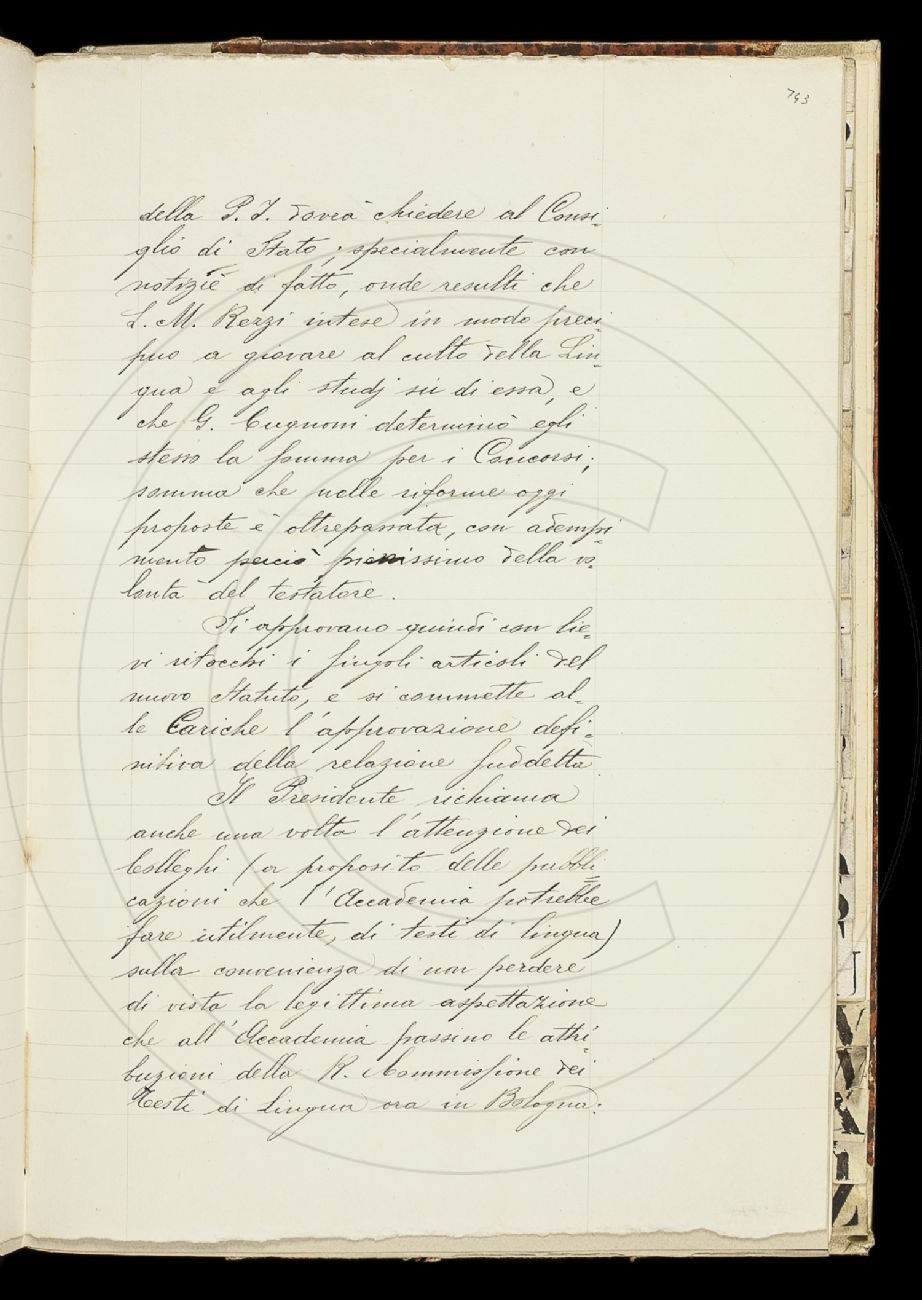 793
della P. I. dovrà chiedere al Consi-
glio di Stato; specialmente con
notizie di fatto, onde resulti che
L. M. Rezzi intese in modo preci-
puo a giovare al culto della Lin-
gua e agli studj su di essa, e
che G. Cugnoni determinò egli
stesso la somma per i Concorsi;
somma che nelle riforme oggi
proposte è oltrepassata, con adempi-
mento perciò pienissimo della vo-
lontà del testatore.
Si approvano quindi con lie-
vi ritocchi i singoli articoli del
nuovo Statuto, e si commette al-
le Cariche l'approvazione defi-
nitiva della relazione suddetta
Il Presidente richiama
anche una volta l'attenzione dei
Colleghi (a proposito delle pubbli-
cazioni che l'Accademia potrebbe
fare utilmente, di testi di lingua)
sulla convenienza di non perdere
di vista la legittima aspettazione
che all'Accademia passino le attri-
buzioni della R. Commissione dei
Testi di Lingua ora in Bologna: